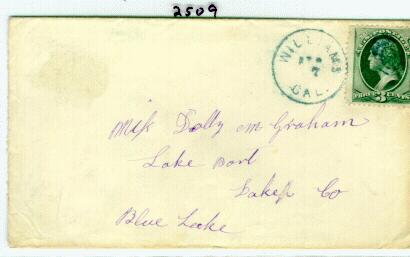 2509
WILLIAMS
7
CAL.
THREE CENTS
Miss Dolly M Graham
Lake Port
Lake Co
Blue Lake